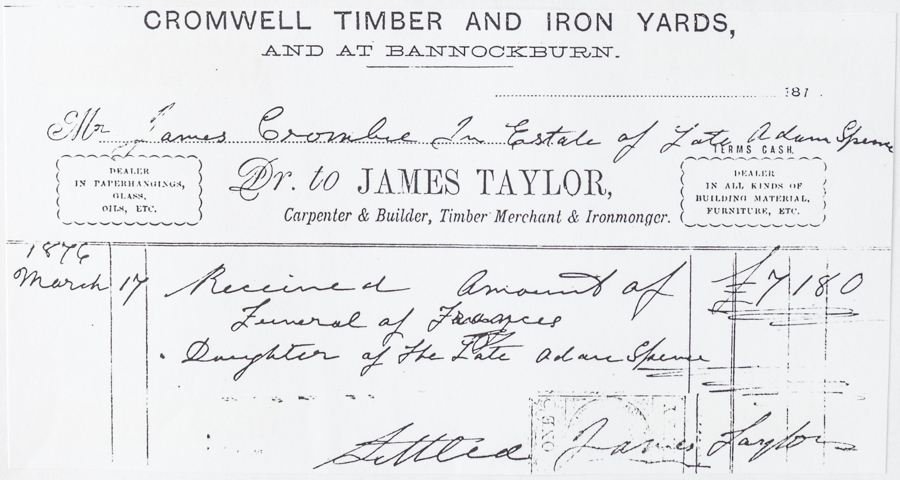 CROMWELL TIMBER AND IRON YARDS,
AND AT BANNOCKBURN.
187
Mr James Crombie In Estate of Late Adam Spence
TERMS CASH.
DEALER
IN PAPERHANGINGS,
GLASS,
OILS, ETC.
Dr. to JAMES TAYLOR,
Carpenter & Builder, Timber Merchant & Ironmonger.
DEALER
IN ALL KINDS OF
BUILDING MATERIAL,
FURNITURE, ETC.
1876
March 17 Received Amount of £7 18 0
Funeral of Frances
Daughter of the Late Adam Spence
ONE
Settled James Taylor